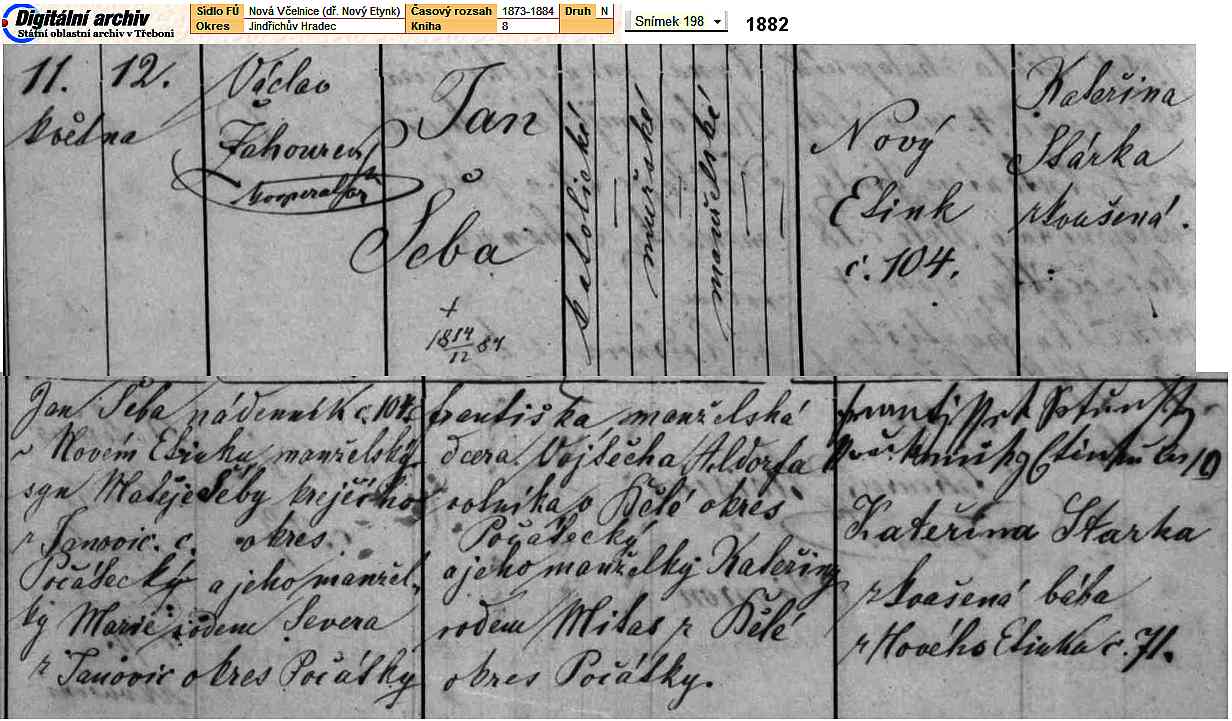 Digitální archiv
Státní oblastní archiv v Třeboni
Sídlo FÚ Nová Včelnice (dř. Nový Etynk) Časový rozsah 1873-1884 Druh N
Okres Jindřichův Hradec Kniha 8
Snímek 198
1882
11. 12.
května
Václav
Kooperator
Jan
Šeba
+
18 14/12 84
katolické
mužské
manželské
Nový
Etink
č. 104.
Kateřina
Stárka
zkoušená.
Jan Šeba nádenník č. 104.
v Novém Etinku manželský
syn Matěje Šeby krejčího
z Janovic. č. okres
Počátecký a jeho manžel-
ky Marie rodem Severa
z Janovic okres Počátky
františka manželská
dcera Vojtěcha Aldorfa
rolníka v Bělé okres
Počátecký
a jeho manželky Kateřiny
rodem Mikas z Bělé
okres Počátky.
Kateřina Starka
zkoušená bába
z Nového Etinka č. 71.